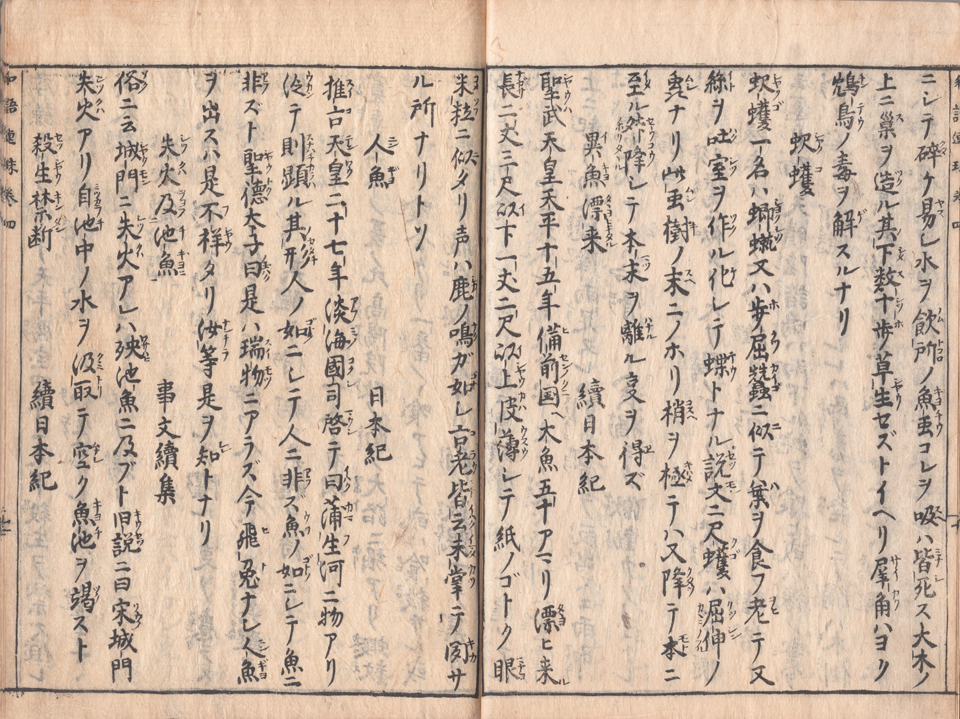 ニシテ碎ケ易シ水ヲ飲所ノ魚虫コレヲ吸ヘハ皆死ス大木ノ
上ニ巣ヲ造ル其下数十歩草生セズトイヘリ犀角ハヨク
鴆鳥ノ毒ヲ解スルナリ
蚇蠖
蚇蠖一名ハ蝍蝛又ハ歩屈蠶ニ似テ葉ヲ食フ老テ又
絲ヲ吐室ヲ作ル化シテ蝶トナル説文ニ尺蠖ハ屈伸ノ
虫ナリ此虫樹ノ末ニノホリ梢ヲ極テハ又降テ本ニ
至ル然降シテ本末ヲ離ル事ヲ得ズ
異魚漂来 續日本紀
聖武天皇天平十五年備前国ヘ大魚五十アマリ漂ヒ来ル
長二丈三尺以下一丈二尺以上皮薄シテ紙ノゴトク眼
米粒ニ似タリ声ハ鹿ノ鳴ガ如シ古老皆云未掌テ聞サ
ル所ナリトソ
人魚 日本紀
推古天皇二十七年淡海國司啓テ曰蒲生河ニ物アリ
泛テ則顕ル其形人ノ如ニシテ人ニ非ス魚ノ如ニシテ魚ニ
非ズト聖德太子曰是ハ瑞物ニアラズ今飛兔ナシ人魚
ヲ出スハ是不祥タリ汝等是ヲ知トナリ
失火及池魚 事文續集
俗ニ云城門ニ失火アレハ殃池魚ニ及ブト旧説ニ曰宋城門
失火アリ自池中ノ水ヲ汲取テ空ク魚池ヲ竭スト
殺生禁断 續日本紀